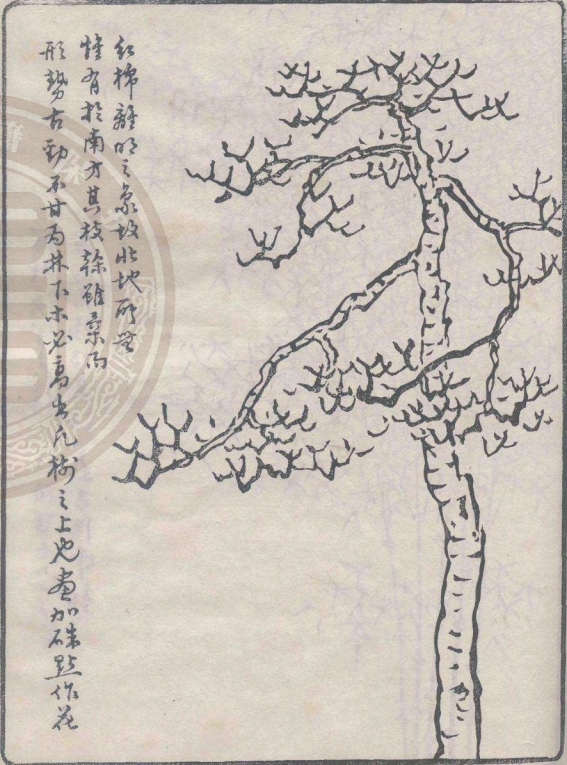 紅棉離明之象故北地所無
惟有於南方其枝幹雖柔而
形勢古勁不甘為林下木必高出凡樹之上也畫加硃點作花